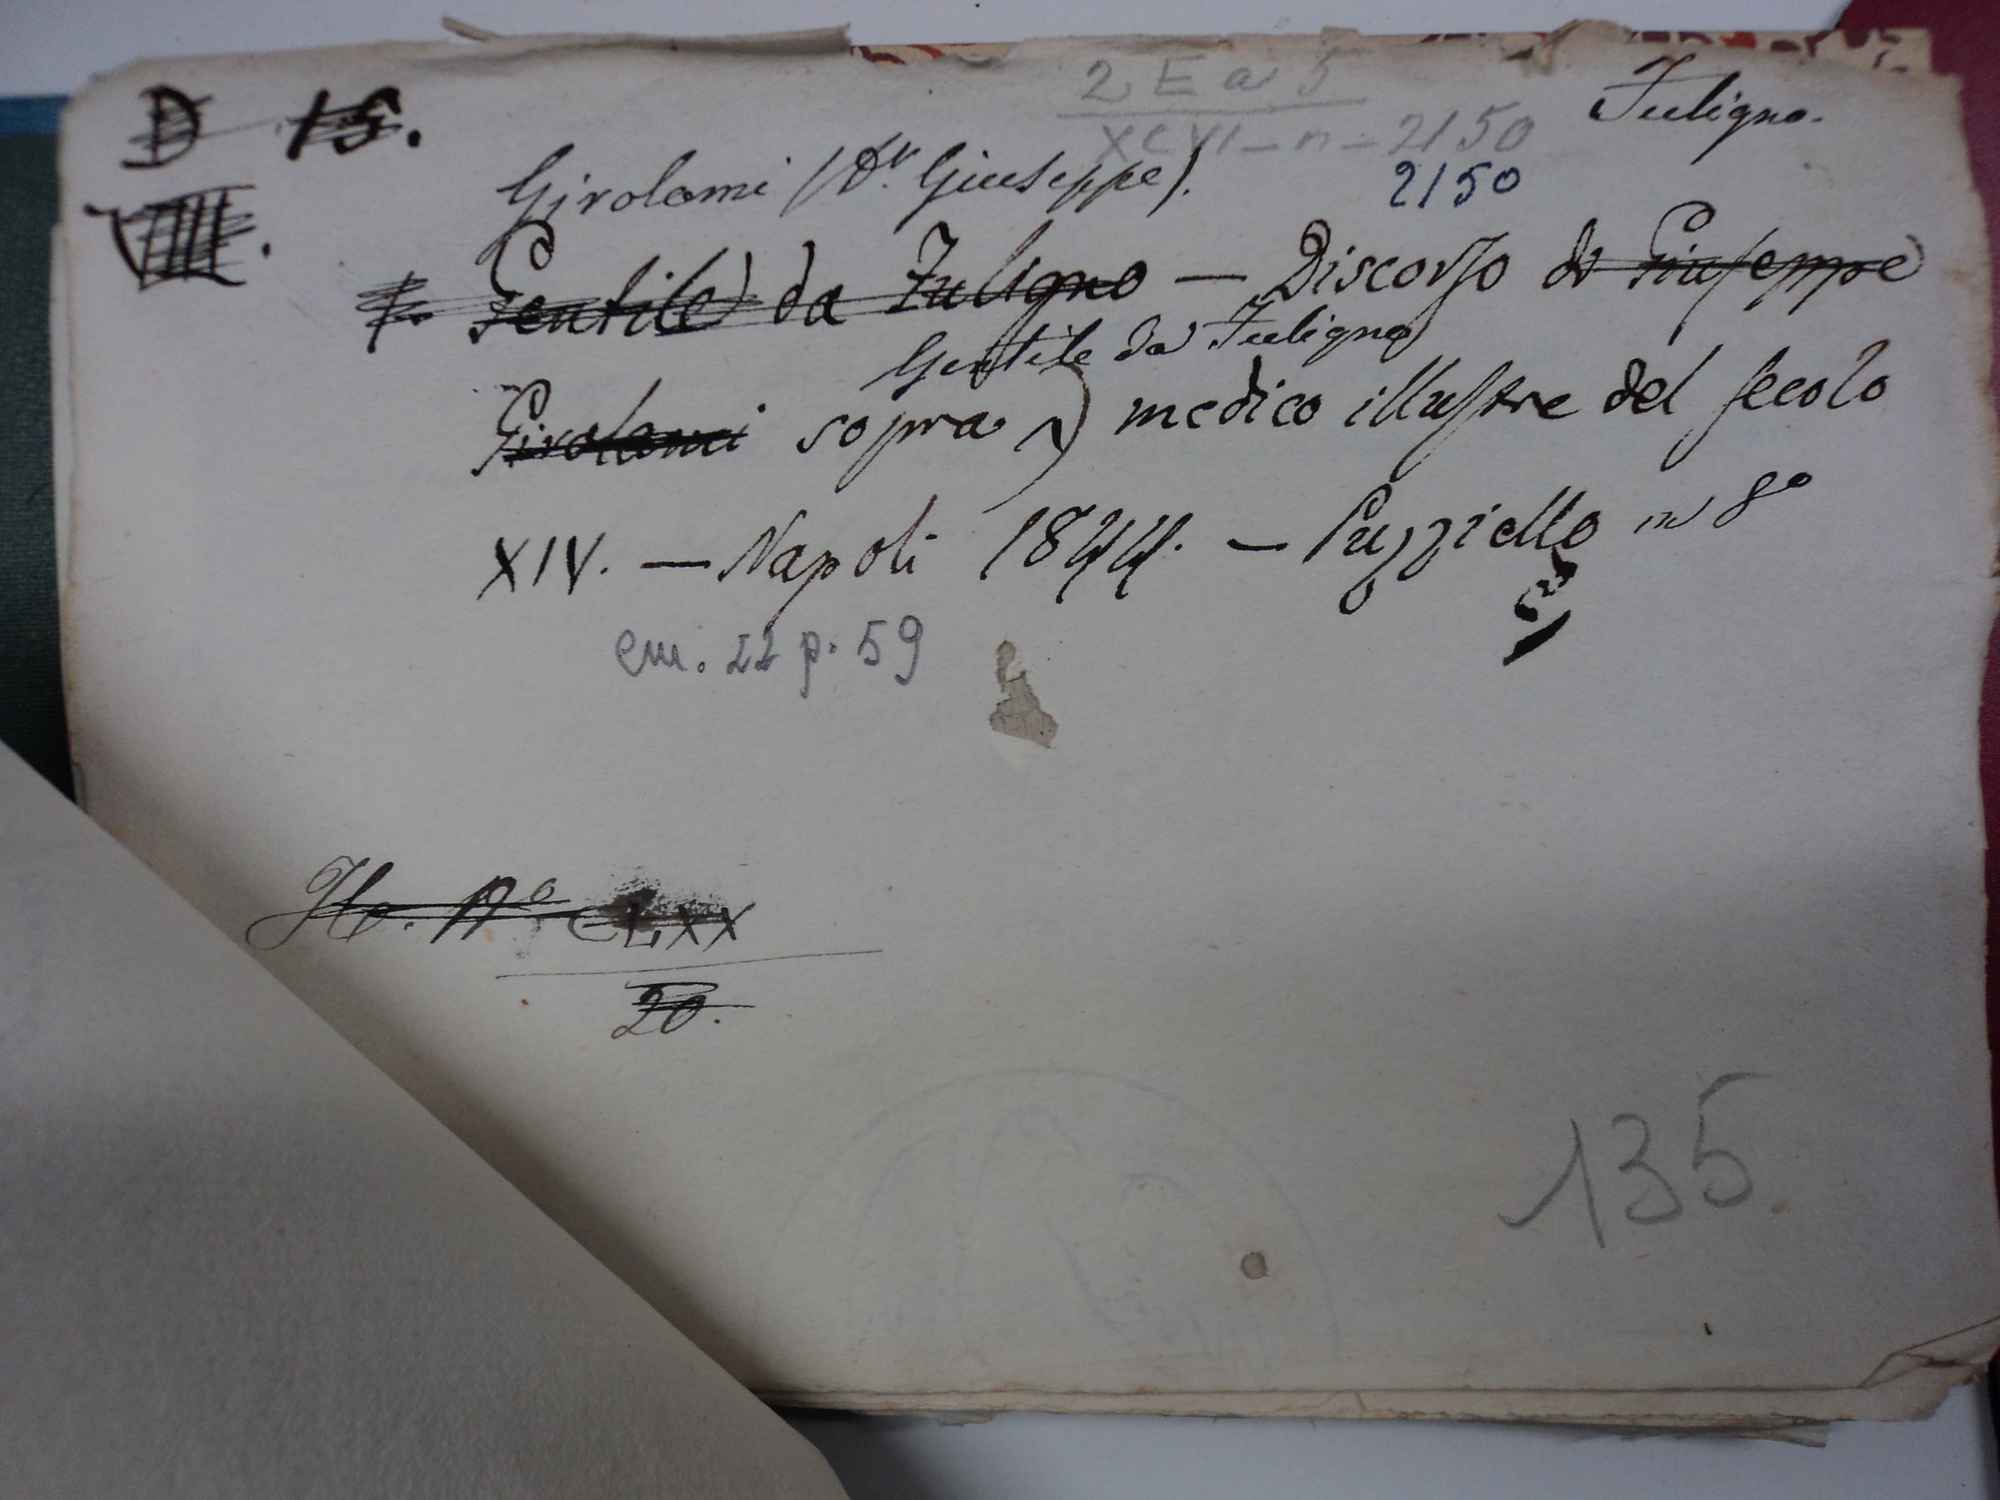 D 15.
2 E a 5
Fuligno.
XCVI - n - 2150
Girolami (Dr. Giuseppe).
2150
VIIII.
Gentile da Fuligno — Discorso di Giuseppe
Gentile da Fuligno
Girolami sopra medico illustre del secolo
XIV. — Napoli 1844. — Puzziello in 8°
em. 22 p. 59
No. CLXX
20.
135.